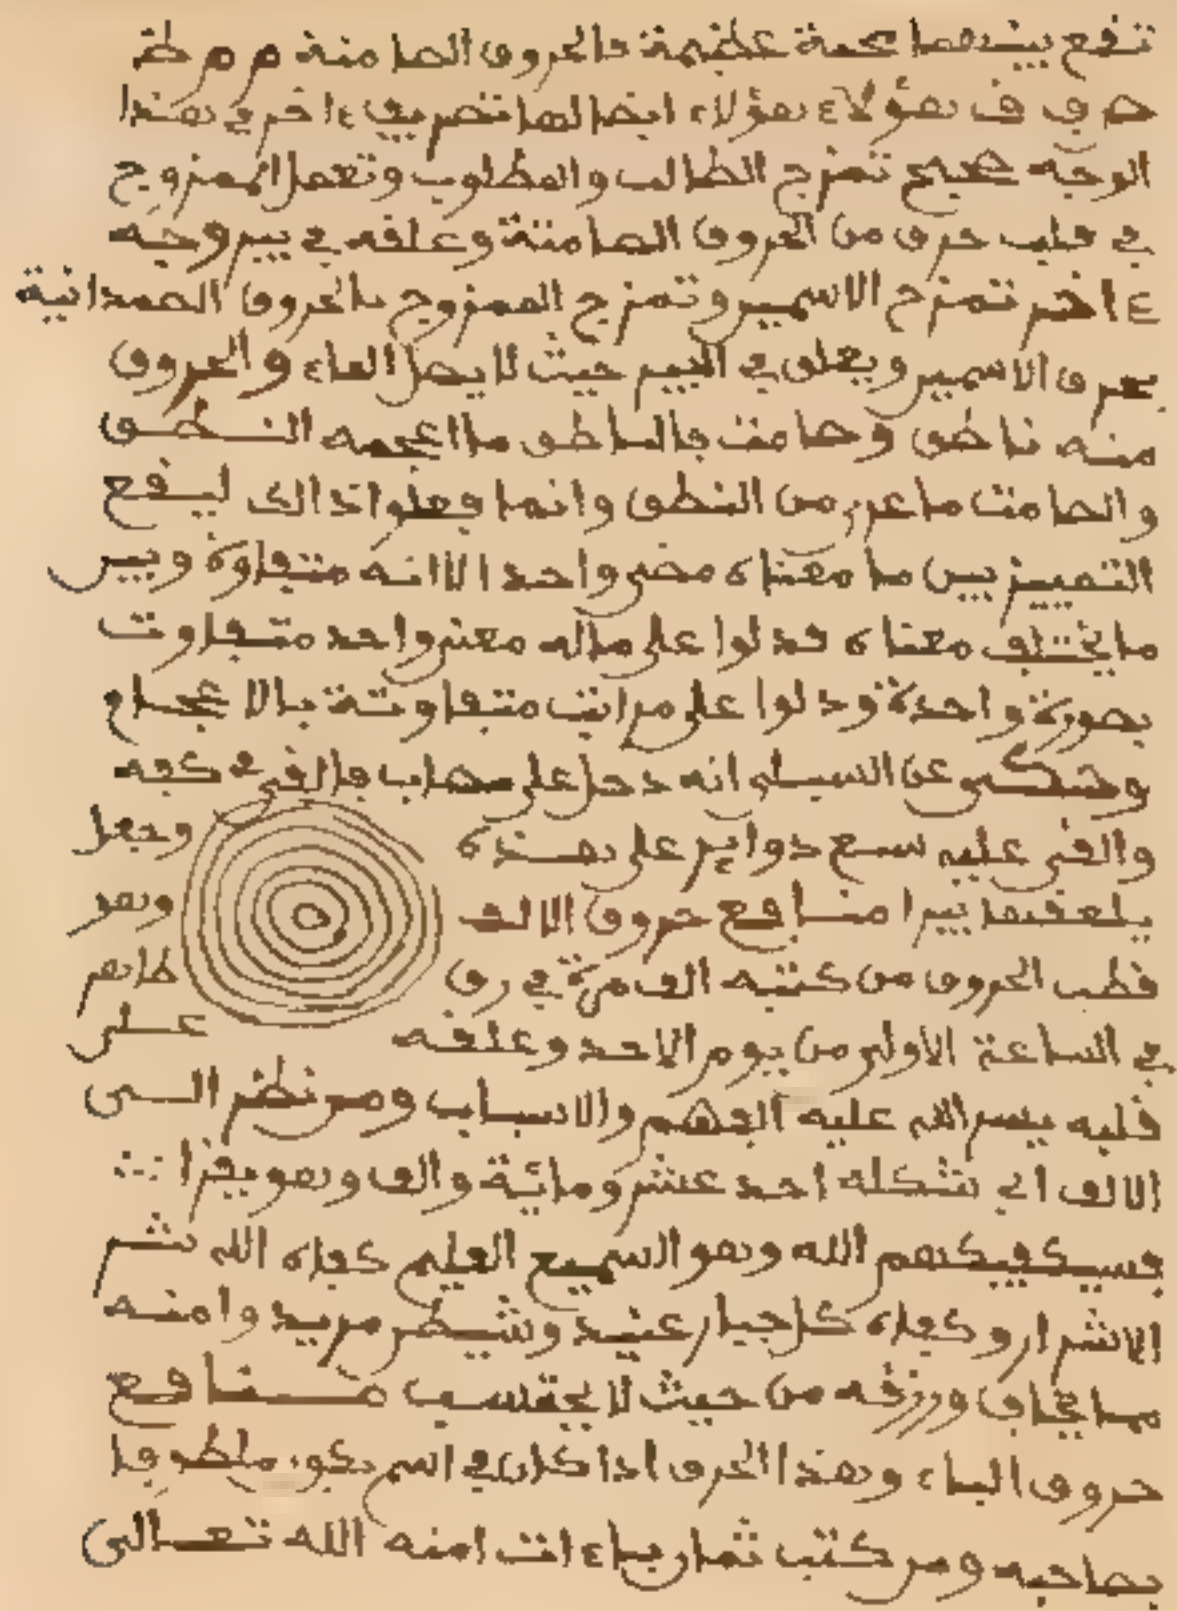 تقع بينهما محبة عظيمة فالحروف الصامتة م م ط
ص ف ق هؤلاء هؤلاء ايضا لها تصريف ءاخر في هذا
الوجه صحيح تمزج الطالب والمطلوب وتعمل الممزوج
في قلب حرف من الحروف الصامتة وعلقه في بير وجه
ءاخر تمزج الاسمين وتمزج الممزوج بالحروف الصمدانية
بحرف الاسمين ويعلق في البير حيث لا يصل الماء والحروف
منه ناطق وصامت فالناطق ما اعجمه النطق
والصامت ما عري من النطق وانما فعلوا ذالك ليقع
التمييز بين ما معناه مضى واحد الا انه متفاوة وبين
ما يختلف معناه فدلوا على ماله معنى واحد متفاوت
بصورة واحدة ودلوا على مراتب متفاوتة بالا
وحكى عن السبلى انه دخل على فالقى في كفه
والقى عليه سبع دواير على هذه وجعل
يلعقهما منافع حروف الالف وهو
قطب الحروف من كتبه الف مرة في رق طاهر
في الساعة الاولى من يوم الاحد وعلقه على
قلبه يسر الله عليه الفهم والاسباب ومن نظر الى
الالف اي شكله احد عشر ومائة والف وهو يقرا
فسيكفيكهم الله وهو السميع العليم كفاه الله شر
الاشرار وكفاه كل جبار عنيد وشيطن مريد وامنه
مما يخاف ورزقه من حيث لا يحتسب منافع
حروف الباء وهذا الحرف اذا كان في اسم يكون ملطوفا
بصاحبه ومن كتب ثمان باءات امنه الله تعالى